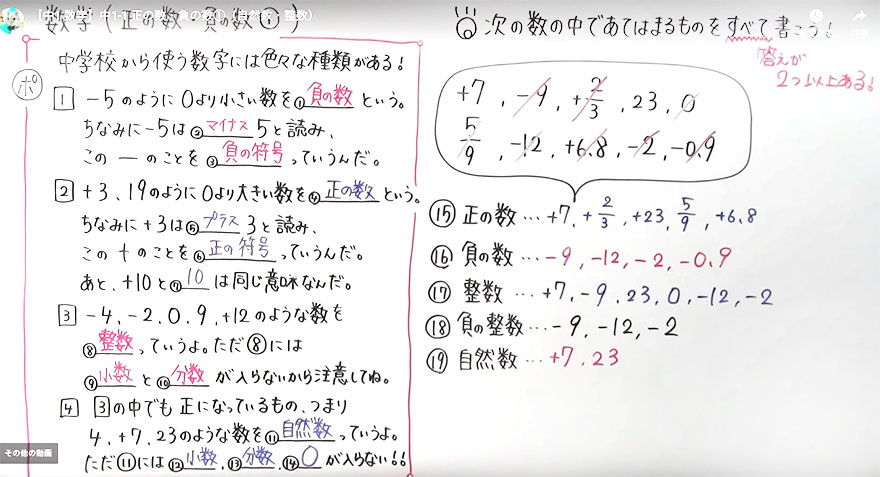 【中1 数学】中1-1 正の数・負の数①(自然数・整数)
数学(正の数・負の数①)
中学校から使う数字には色々な種類がある!
ポ
1 −5のように0より小さい数を①負の数という。
ちなみに−5は②マイナス5と読み、
この − のことを③負の符号っていうんだ。
2 +3、19のように0より大きい数を④正の数という。
ちなみに+3は⑤プラス3と読み、
この + のことを⑥正の符号っていうんだ。
あと、+10と⑦10は同じ意味なんだ。
3 −4、−2、0、9、+12のような数を
⑧整数っていうよ。ただ⑧には
⑨小数と⑩分数が入らないから注意してね。
4 3の中でも正になっているもの、つまり
4、+7、23のような数を⑪自然数っていうよ。
ただ⑪には⑫小数、⑬分数、⑭0が入らない!!
その他の動画
次の数の中であてはまるものをすべて書こう!
答えが
2つ以上ある!
+7, −9, +2/3, 23, 0
5/9, −12, +6.8, −2, −0.9
⑮正の数…+7, +2/3, +23, 5/9, +6.8
⑯負の数…−9, −12, −2, −0.9
⑰整数…+7, −9, 23, 0, −12, −2
⑱負の整数…−9, −12, −2
⑲自然数…+7, 23